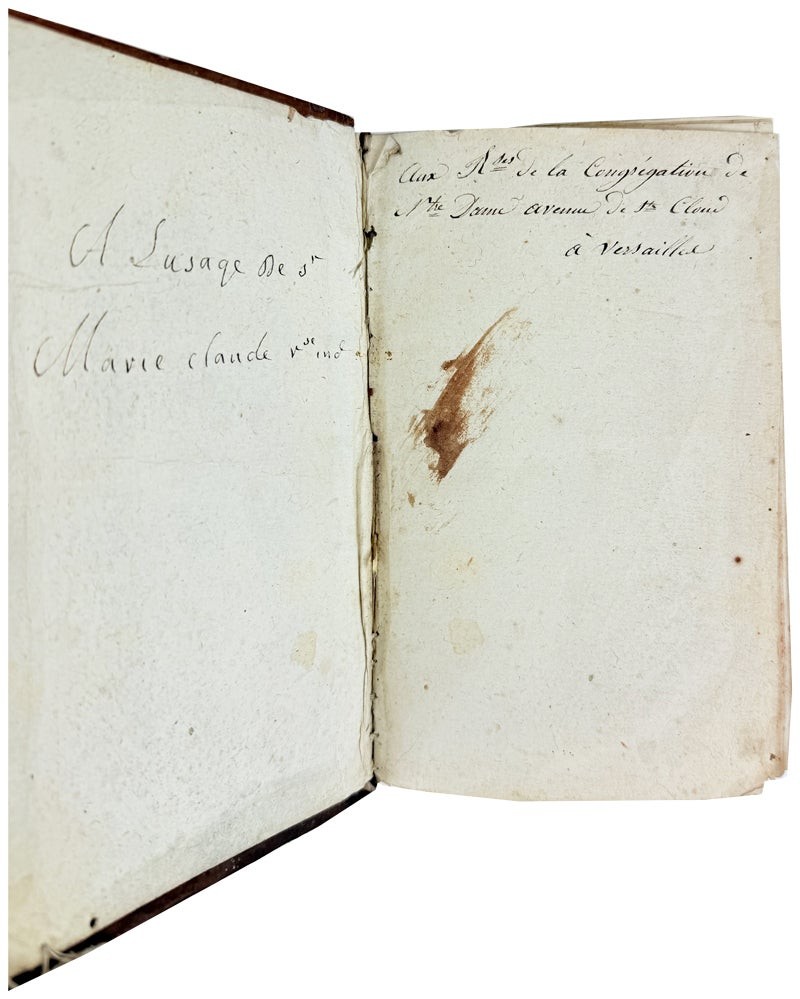 A Lusage De sr
Marie claude rse ind
Aux Rses de la Congrégation de
Ntre Dame avenue de St Cloud
à Versailles